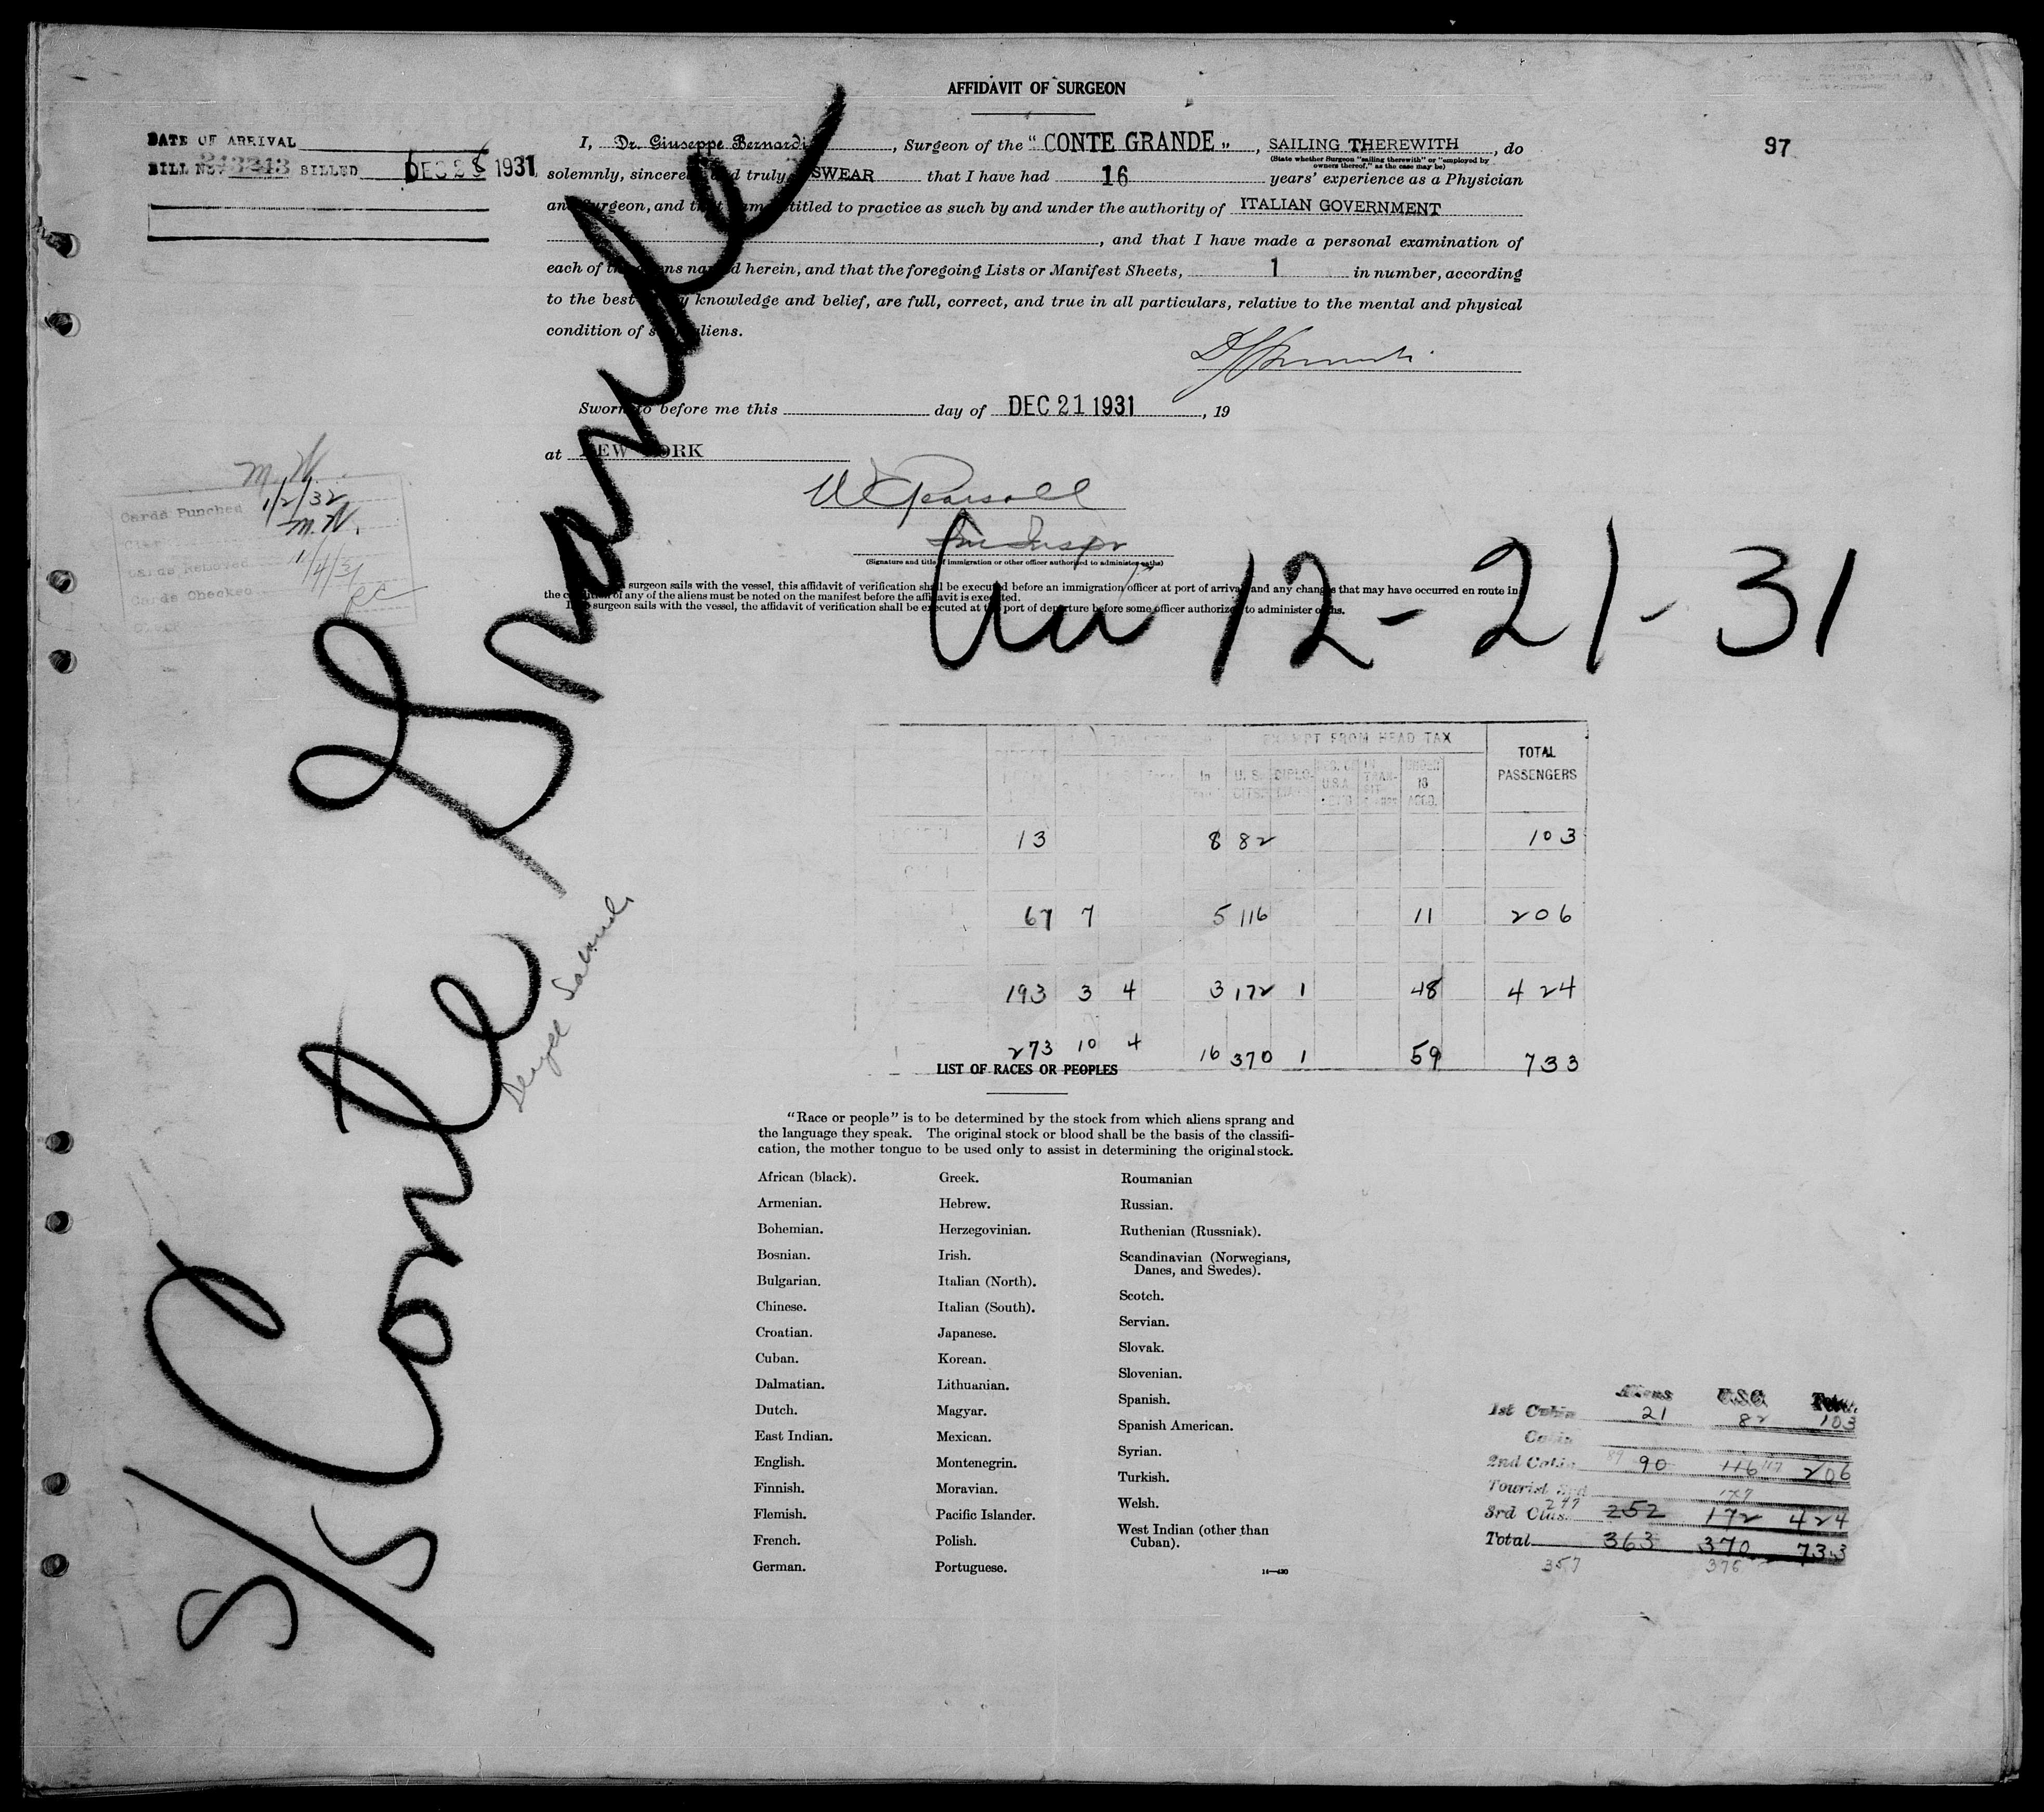 AFFIDAVIT OF SURGEON
97
DATE OF ARRIVAL
BILL NO. 343243 BILLED DEC 28 1931
I, Dr. Giuseppe Bernardi, Surgeon of the "CONTE GRANDE", SAILING THEREWITH, do
(State whether Surgeon "sailing therewith" or "employed by
owners thereof," as the case may be)
solemnly, sincerely and truly SWEAR that I have had 16 years' experience as a Physician
and Surgeon, and that I am entitled to practice as such by and under the authority of ITALIAN GOVERNMENT
, and that I have made a personal examination of
each of the aliens named herein, and that the foregoing Lists or Manifest Sheets, 1 in number, according
to the best of my knowledge and belief, are full, correct, and true in all particulars, relative to the mental and physical
condition of said aliens.
Sworn to before me this day of DEC 21 1931, 19
at NEW YORK
W Pearsall
Imm Inspr
(Signature and title of immigration or other officer authorized to administer oaths)
surgeon sails with the vessel, this affidavit of verification shall be executed before an immigration officer at port of arrival and any changes that may have occurred en route in
the condition of any of the aliens must be noted on the manifest before the affidavit is executed.
surgeon sails with the vessel, the affidavit of verification shall be executed at the port of departure before some officer authorized to administer oaths.
M.W.
Cards Punched 1/2/32
M.W.
Cards Removed 1/4/31
Cards Checked RC
S/S Conte Grande
Arr 12-21-31
EXEMPT FROM HEAD TAX
TOTAL
PASSENGERS
DIRECT In U.S. CITS. DIPLO- UNDER 16 ACCO.
13 8 82 103
67 7 5 116 11 206
193 3 4 3 172 1 48 424
273 10 4 16 370 1 59 733
LIST OF RACES OR PEOPLES
"Race or people" is to be determined by the stock from which aliens sprang and
the language they speak. The original stock or blood shall be the basis of the classifi-
cation, the mother tongue to be used only to assist in determining the original stock.
African (black).
Armenian.
Bohemian.
Bosnian.
Bulgarian.
Chinese.
Croatian.
Cuban.
Dalmatian.
Dutch.
East Indian.
English.
Finnish.
Flemish.
French.
German.
Greek.
Hebrew.
Herzegovinian.
Irish.
Italian (North).
Italian (South).
Japanese.
Korean.
Lithuanian.
Magyar.
Mexican.
Montenegrin.
Moravian.
Pacific Islander.
Polish.
Portuguese.
Roumanian
Russian.
Ruthenian (Russniak).
Scandinavian (Norwegians,
Danes, and Swedes).
Scotch.
Servian.
Slovak.
Slovenian.
Spanish.
Spanish American.
Syrian.
Turkish.
Welsh.
West Indian (other than
Cuban).
14—430
Aliens U.S.C. Total
1st Cabin 21 82 103
Cabin
2nd Cabin 89 90 116 117 206
Tourist 3rd 177
3rd Class 247 252 172 424
Total 363 370 733
357 376